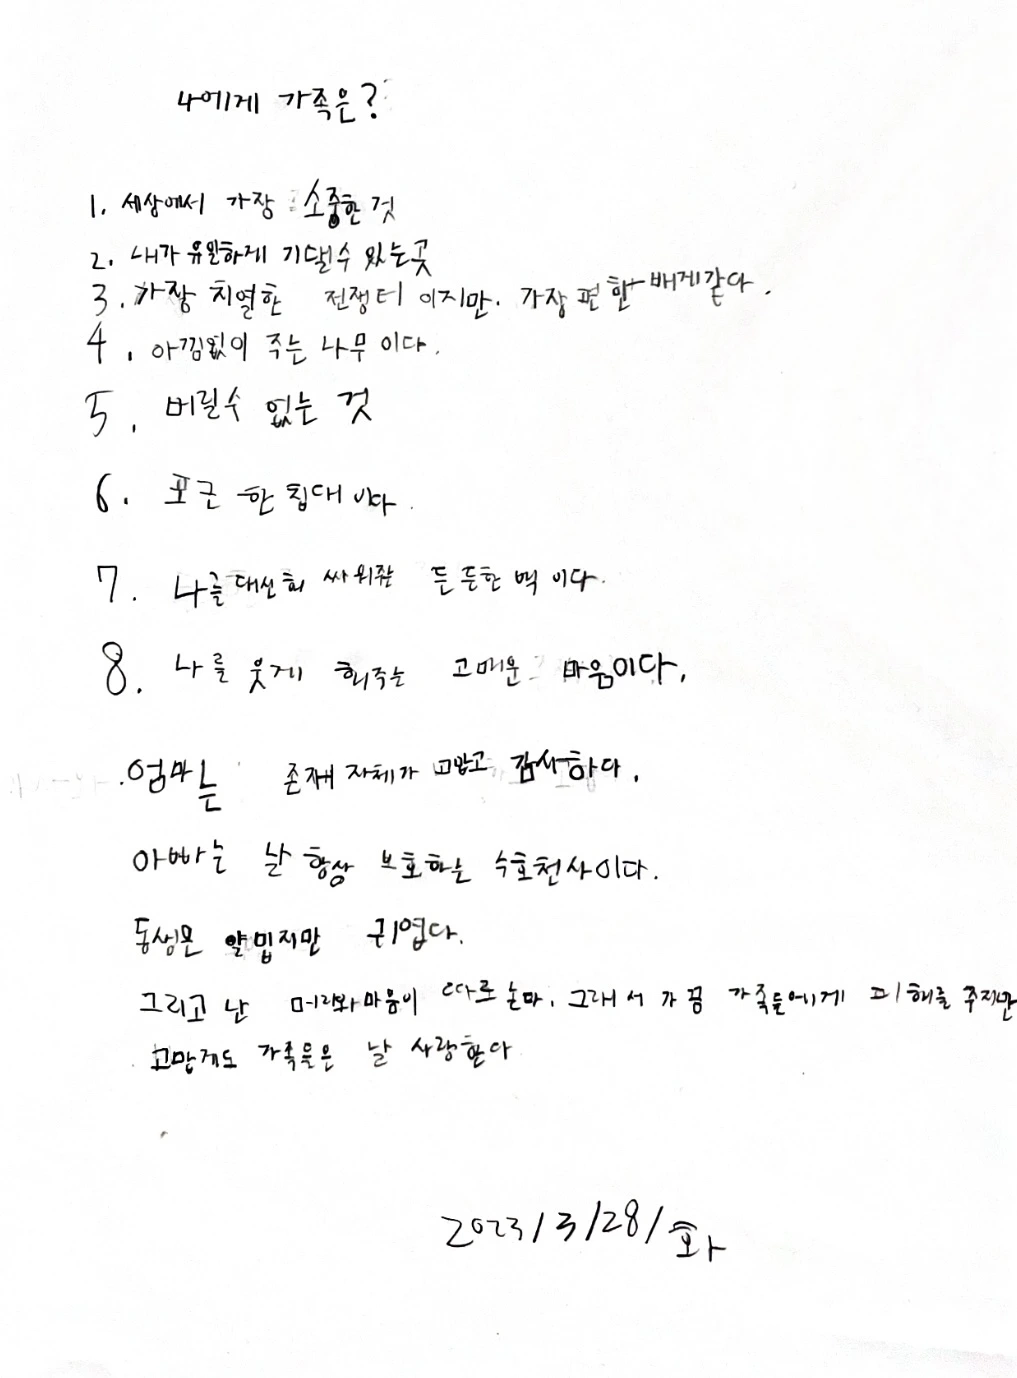 나에게 가족은?
1. 세상에서 가장 소중한 것
2. 내가 유일하게 기댈수 있는곳
3. 가장 치열한 전쟁터 이지만. 가장 편한 배게같다.
4. 아낌없이 주는 나무 이다.
5. 버릴수 없는 것
6. 포근한 침대 이다.
7. 나를 대신회 싸워줄 든든한 벽 이다.
8. 나를 웃게 회주는 고매운 마음이다.
엄마는 존재 자체가 고맙고 감사하다.
아빠는 날 항상 보호하는 수호천사이다.
동생은 얄밉지만 귀엽다.
그리고 난 머리와마음이 따로 논다. 그래서 가끔 가족들에게 피해를 주지만
고맙게도 가족들은 날 사랑한다
2023/3/28/화